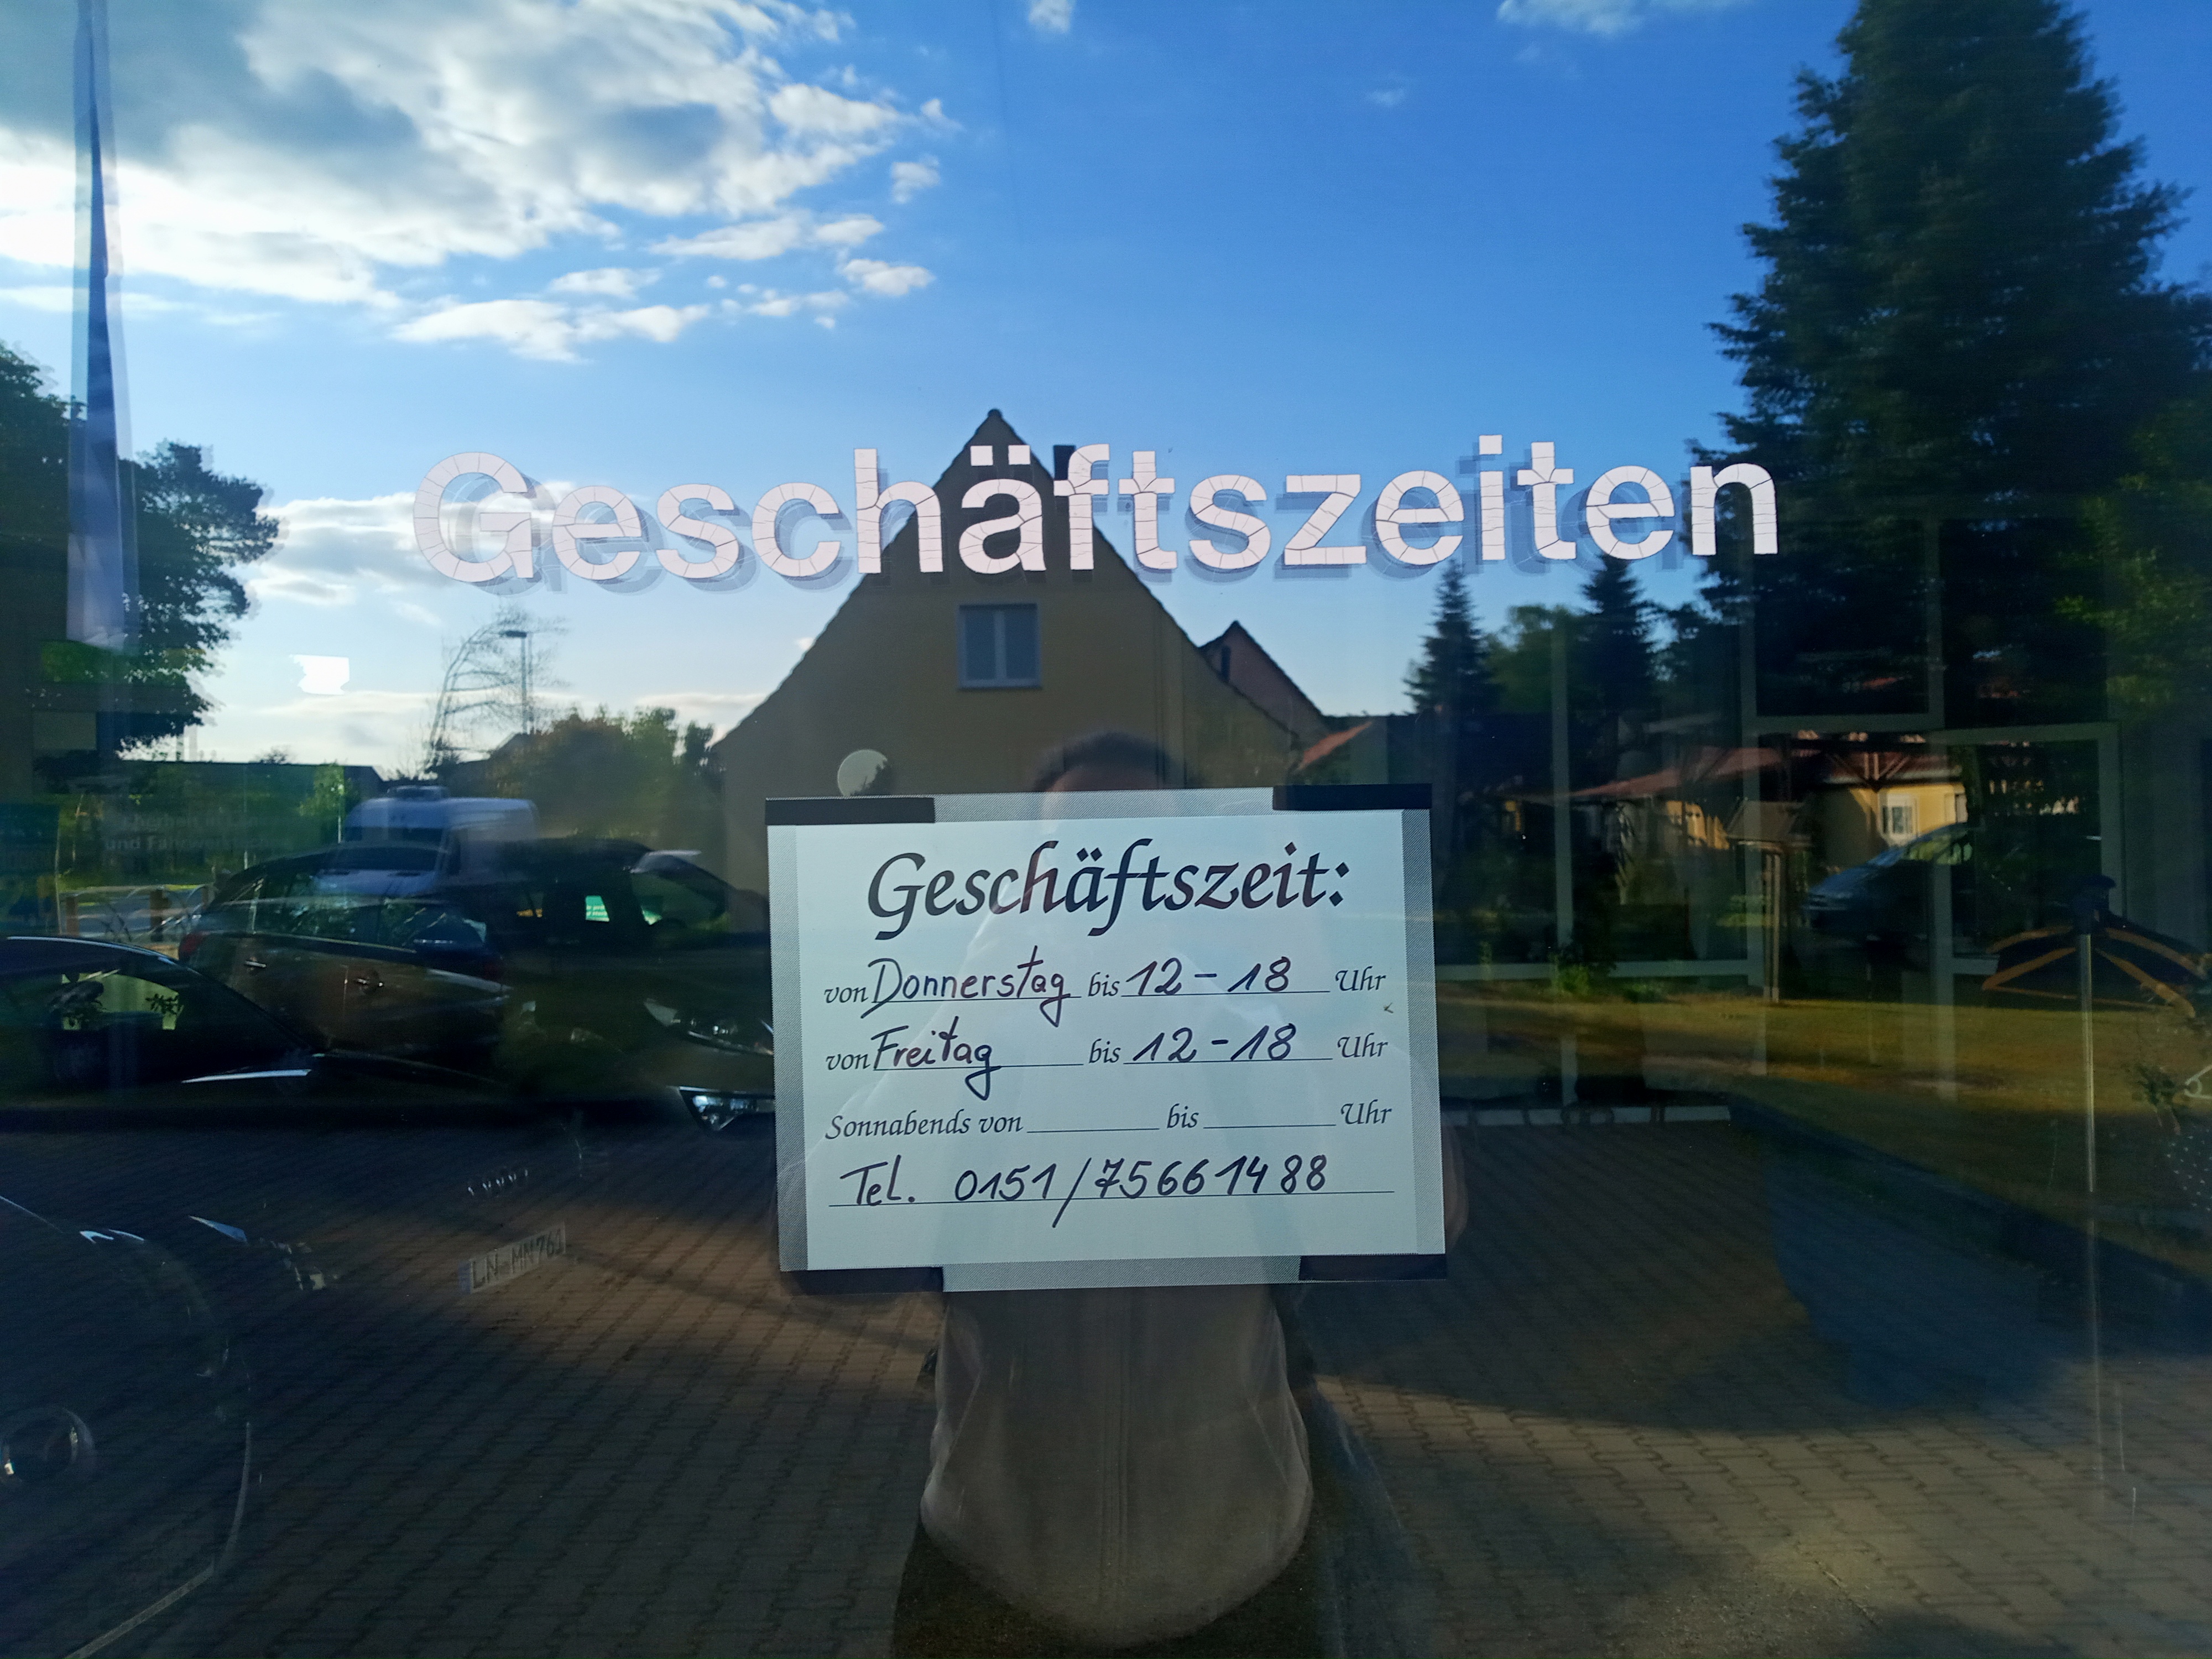 Geschäftszeiten
und Fahrwerk
Geschäftszeit:
von Donnerstag bis 12 - 18 Uhr
von Freitag bis 12 - 18 Uhr
Sonnabends von bis Uhr
Tel. 0151/75661488
LN MN 761